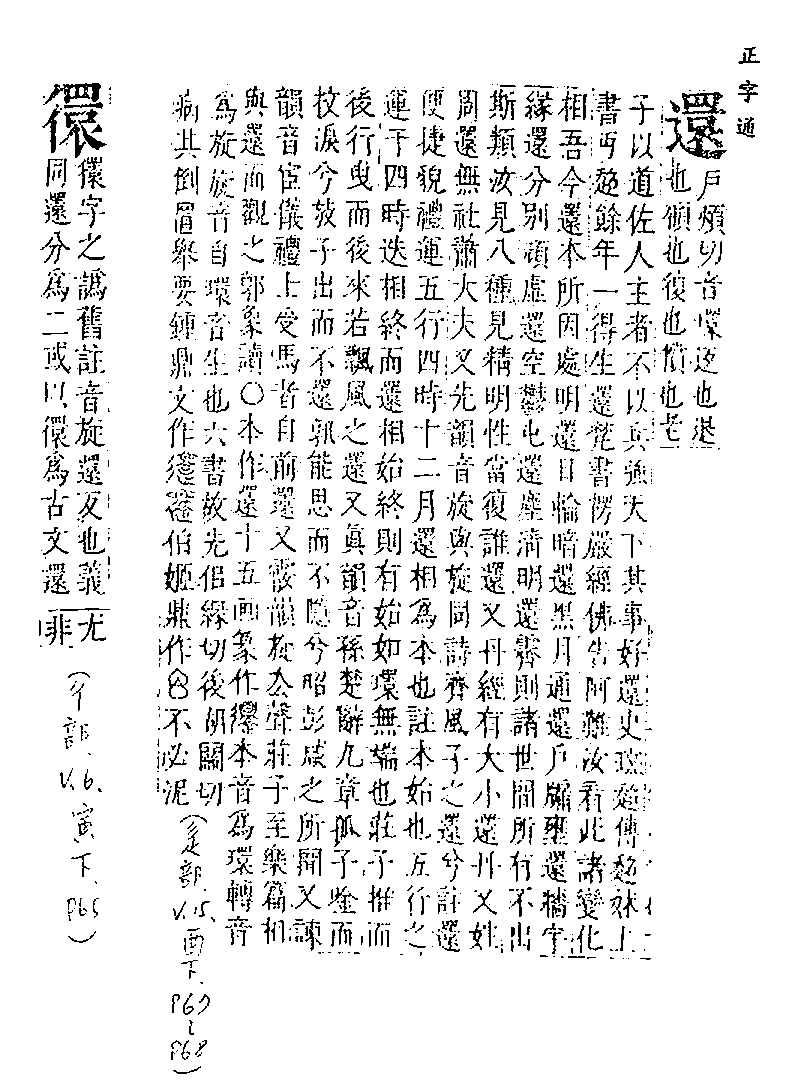 正字通
還
戶頑切音環返也退
也償也復也償也老
子以道佐人主者不以兵強天下其事好還史班超傳超妹上
書丐超餘年一得生還梵書楞嚴經佛告阿難汝看此諸變化
相吾今還本所因處明還日輪暗還黑月通還戶牖壅還牆宇
緣還分別頑虛還空鬱𡋯還塵清明還霽則諸世間所有不出
斯類汝見八種見精明性當復誰還又丹經有大小還丹又姓
周還無社蕭大夫又先韻音旋與旋同詩齊風子之還兮註還
便捷貌禮運五行四時十二月還相為本也註本始也五行之
運于四時迭相終而還相始終則有始如環無端也莊子推而
後行曳而後來若飄風之還又眞韻音孫楚辭九章孤子唫而
抆淚兮放子出而不還孰能思而不隱兮昭彭咸之所聞又諫
韻音宦儀禮上受馬者自前還又霰韻旋去聲莊子至樂篇相
與還而觀之郭象讀〇本作還十五画篆作䙴本音為環轉音
為旋旋音自環音生也六書故先侶緣切後胡關切
病其倒置舉要鍾鼎文作伯姬鼎作不必泥
(辵部、V.15、酉下、P67~P68)
儇
儇字之譌舊註音旋還反也義
同還分為二或以儇為古文還
尤非
(彳部、V.6、寅下、P65)